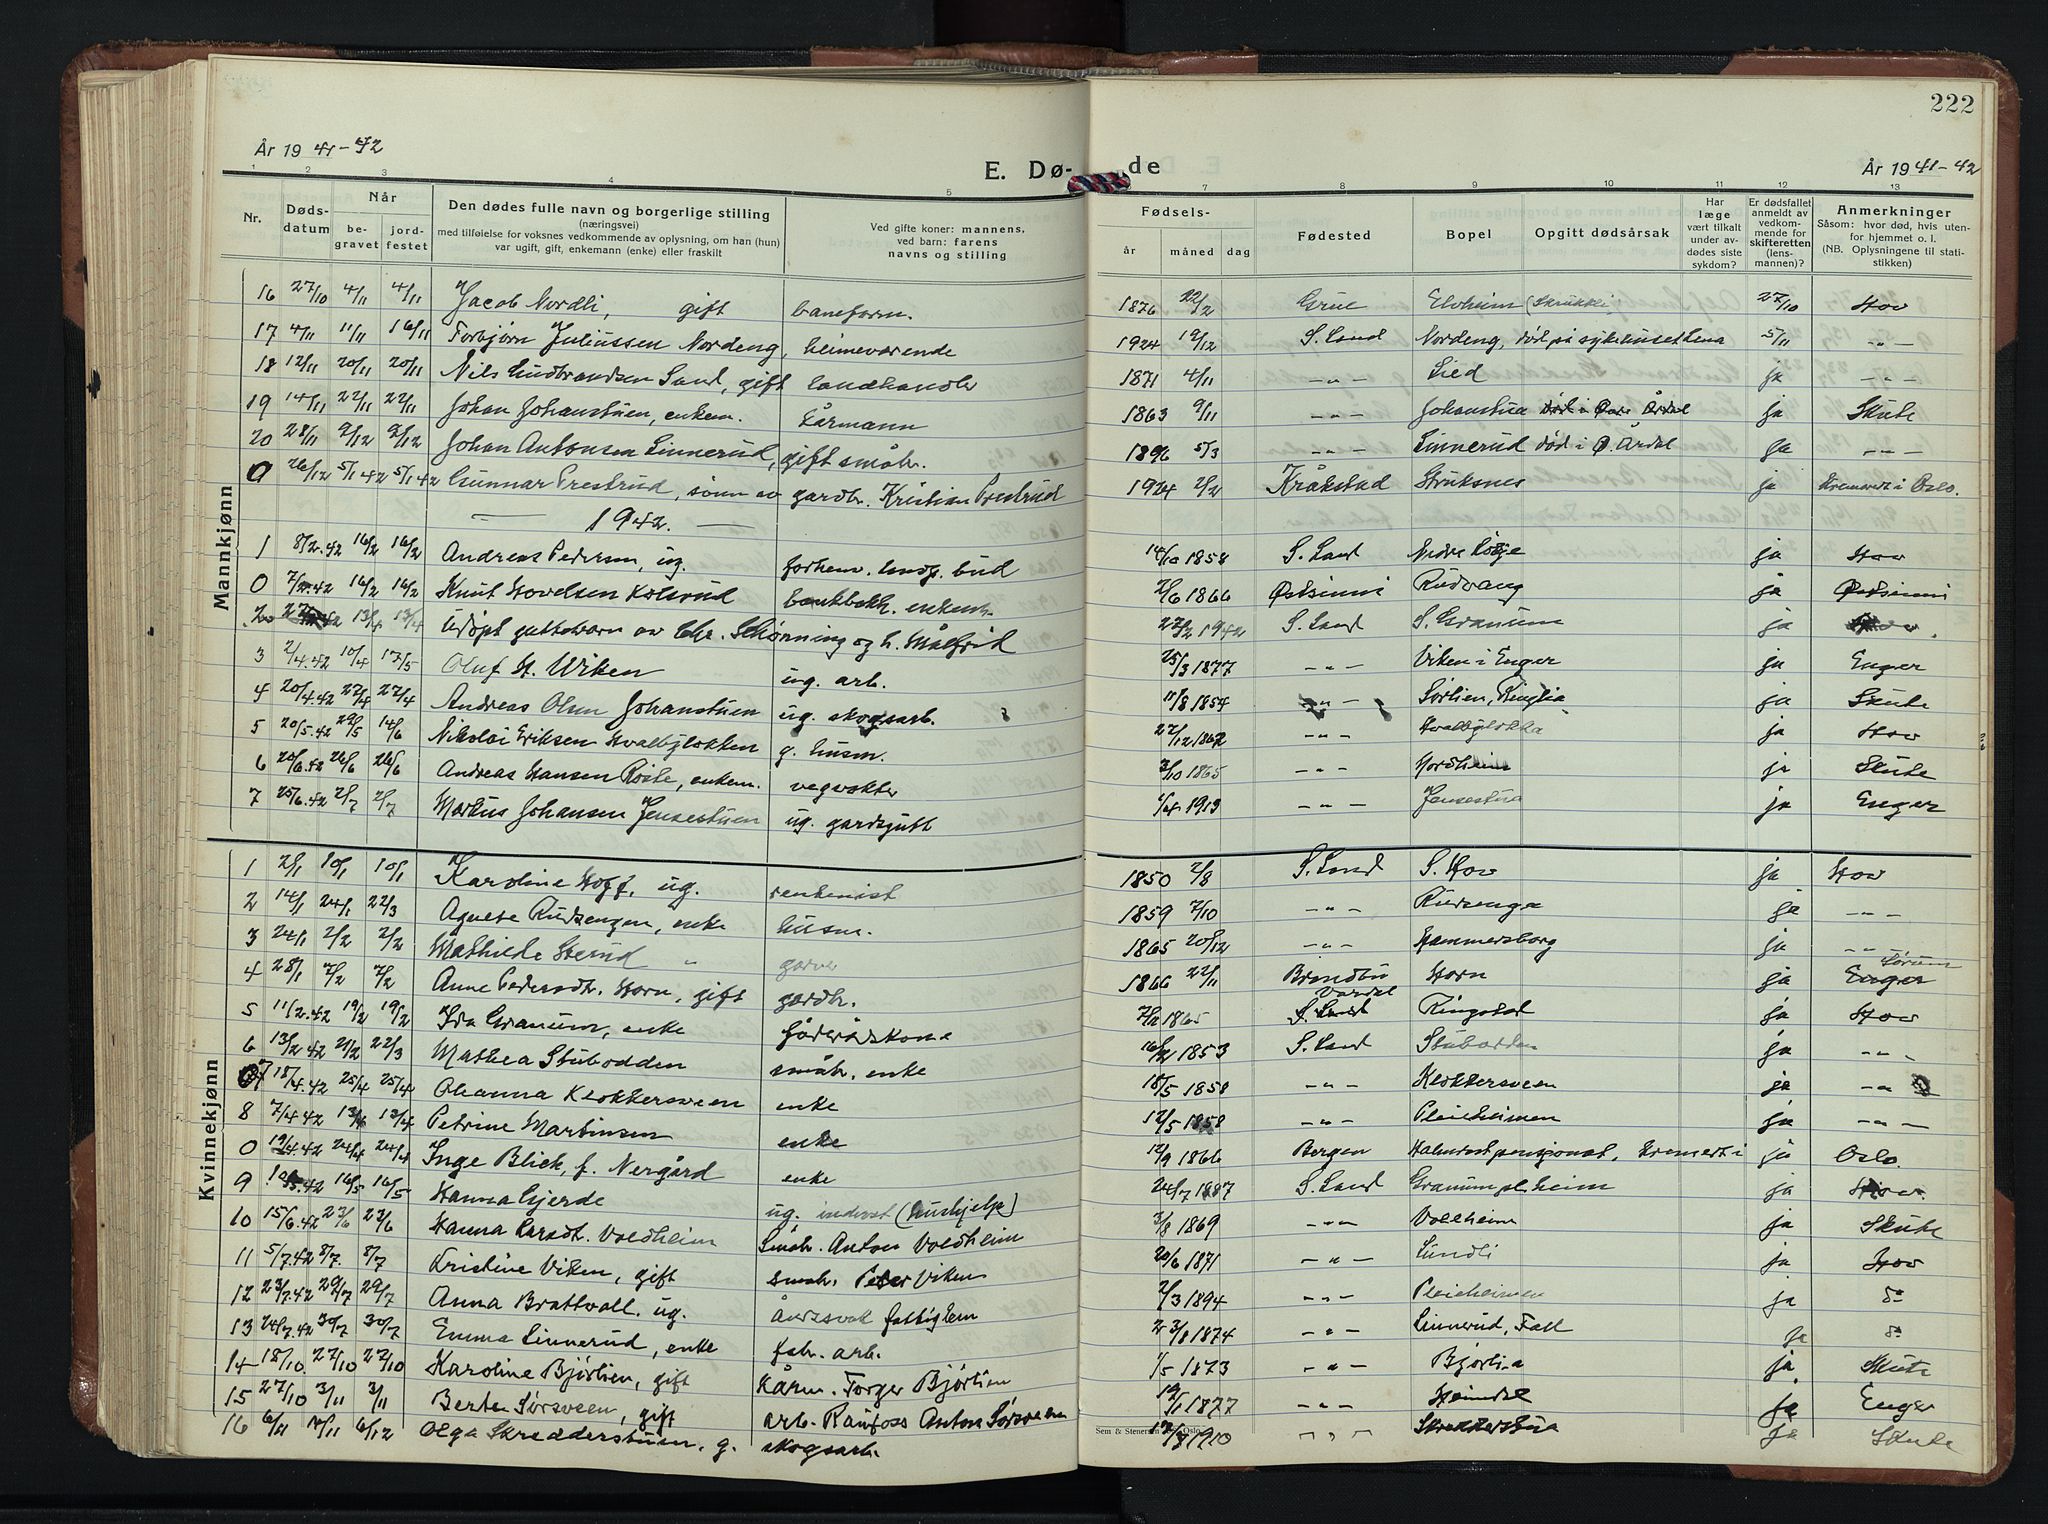 222
År 19 41-42
E. Dø-
de
År 19 41-42
1 2 3 4 5 7 8 9 10 11 12 13
Nr.
Døds-
datum
Når
be-
gravet
jord-
festet
Den dødes fulle navn og borgerlige stilling
(næringsvei)
med tilføielse for voksnes vedkommende av oplysning, om han (hun)
var ugift, gift, enkemann (enke) eller fraskilt
Ved gifte koner: mannens,
ved barn: farens
navns og stilling
Fødsels-
år måned dag
Fødested
Bopel
Opgitt dødsårsak
Har
læge
vært tilkalt
under av-
dødes siste
sykdom?
Er dødsfallet
anmeldt av
vedkom-
mende for
skifteretten
(lens-
mannen)?
Anmerkninger
Såsom: hvor død, hvis uten-
for hjemmet o. l.
(NB. Oplysningene til stati-
stikken)
Mannkjønn
16 27/10 4/11 4/11 Jacob Nordli, gift baneform. 1876 22/2 Grue Elvheim (Skrukkli) 27/10 Hov
17 4/11 11/11 16/11 Torbjørn Juliussen Nordeng, heimeværende 1924 19/12 S. Land Nordeng, død på sykehuset Lena 5/11 -"-
18 12/11 20/11 20/11 Nils Gudbrandsen Sand, gift landhandler 1871 4/11 -"- Lied ja -"-
19 14/11 22/11 22/11 Johan Johanstuen, enkem. kårmann 1863 9/11 -"- Johanstua død i Øvre Årdal ja Skute
20 28/11 9/12 9/12 Johan Antonsen Linnerud, gift småbr. 1896 5/3 -"- Linnerud død i Ø. Årdal ja -"-
0 26/12 5/1 42 5/1 42 Gunnar Prestrud, sønn av gardbr. Kristian Prestrud 1924 2/2 Kråkstad Struksnes ja Kremert i Oslo.
— 1942. —
1 8/2.42 16/2 16/2 Andreas Pedersen, ug. forhenv. bud 14/10 1858 S. Land Nedre ja Hov
0 7/2.42 16/2 16/2 Knut Hovelsen Kolsrud bankbokh. enkem. 2/6 1866 Østsinni Rudvang ja Østsinni
2 13/4 13/4 Udøpt guttebarn av Chr. Schørning og h. Målfrid 27/2 1942 S. Land S. Granum ja Hov.
3 2/4.42 10/4 17/5 Oluf H. Wiken ug. arb. 25/3 1877 -"- Viken i Enger ja Enger
4 20/4.42 27/4 27/4 Andreas Olsen Johanstuen ug. skogsarb. 11/8 1854 -"- Sørlien, Ringlia ja Skute
5 20/5.42 29/5 14/6 Nikolai Eriksen Hvalbyløkken g. husm. 27/12 1862 -"- Hvalbyløkka ja Hov
6 20/6.42 26/6 26/6 Andreas Hansen Røste, enkem. vegvokter 3/10 1865 -"- Nordheim ja Skute
7 25/6.42 2/7 2/7 Markus Johansen Jensestuen ug. gardsgutt 1/4 1913 -"- Jensestua ja Enger
Kvinnekjønn
1 2/1 10/1 10/1 Karoline Hoff, ug. rentenist 1850 2/8 S. Land S. Hov ja Hov
2 14/1 24/1 22/3 Agnete Rudsengen, enke husm. 1859 7/10 -"- Rudsenga ja -"-
3 24/1 2/2 2/2 Mathilde Sterud " garver 1865 20/12 -"- Hammersborg ja -"-
4 28/1 7/2 7/2 Anne Pedersdt. Horn, gift gardbr. 1866 22/11 Brandbu Horn ja Enger Sørum
5 11/2.42 19/2 19/2 Ida Granum, enke føderådskone 7/12 1865 S. Land Vardal Ringstad ja Hov
6 13/2 42 21/2 22/3 Mathea Stubodden småbr. enke 16/2 1853 S. Land Stubodden ja -"-
7 18/4.42 25/4 25/4 Oleanna Klokkersveen enke 18/5 1858 -"- Klokkersveen ja -"-
8 7/4.42 13/4 13/4 Petrine Martinsen enke 12/5 1858 -"- Pleieheimen ja -"-
0 19/4.42 24/4 24/4 Inge Blick, f. Nergård enke 12/9 1866 Bergen pensjonat, Kremert i ja Oslo.
9 10/5.42 16/5 16/5 Hanna Gjerde ug. (hushjelp) 24/7 1887 S. Land Granum pl. heim ja Hov.
10 15/6.42 23/6 23/6 Hanna Larsdt. Voldheim Småbr. Anton Voldheim 3/8 1869 -"- Voldheim ja Skute
11 5/7.42 8/7 8/7 Kristine Viken, gift småbr. Peter Viken 20/6 1871 -"- Lundli ja Hov
12 23/7.42 29/7 29/7 Anna Brattvoll, ug. åndssvak fattiglem 2/3 1894 -"- Pleieheimen ja do
13 24/7.42 30/7 30/7 Emma Linnerud, enke fabr. arb. 23/8 1874 -"- Linnerud, Fall ja do
14 18/10. 27/10 27/10 Karoline Bjørlien, gift Kårm. Torger Bjørlien 1/5 1873 -"- Bjørlia ja Skute
15 27/10 3/11 3/11 Berte Sørsveen, gift arb. Raufoss Anton Sørsveen 19/1 1877 -"- Heimdal ja Enger
16 6/11 11/11 6/12 Olga Skredderstuen, g. skogsarb. 1910 -"- Skredderstua ja Skute
Sem & Stenersen Oslo